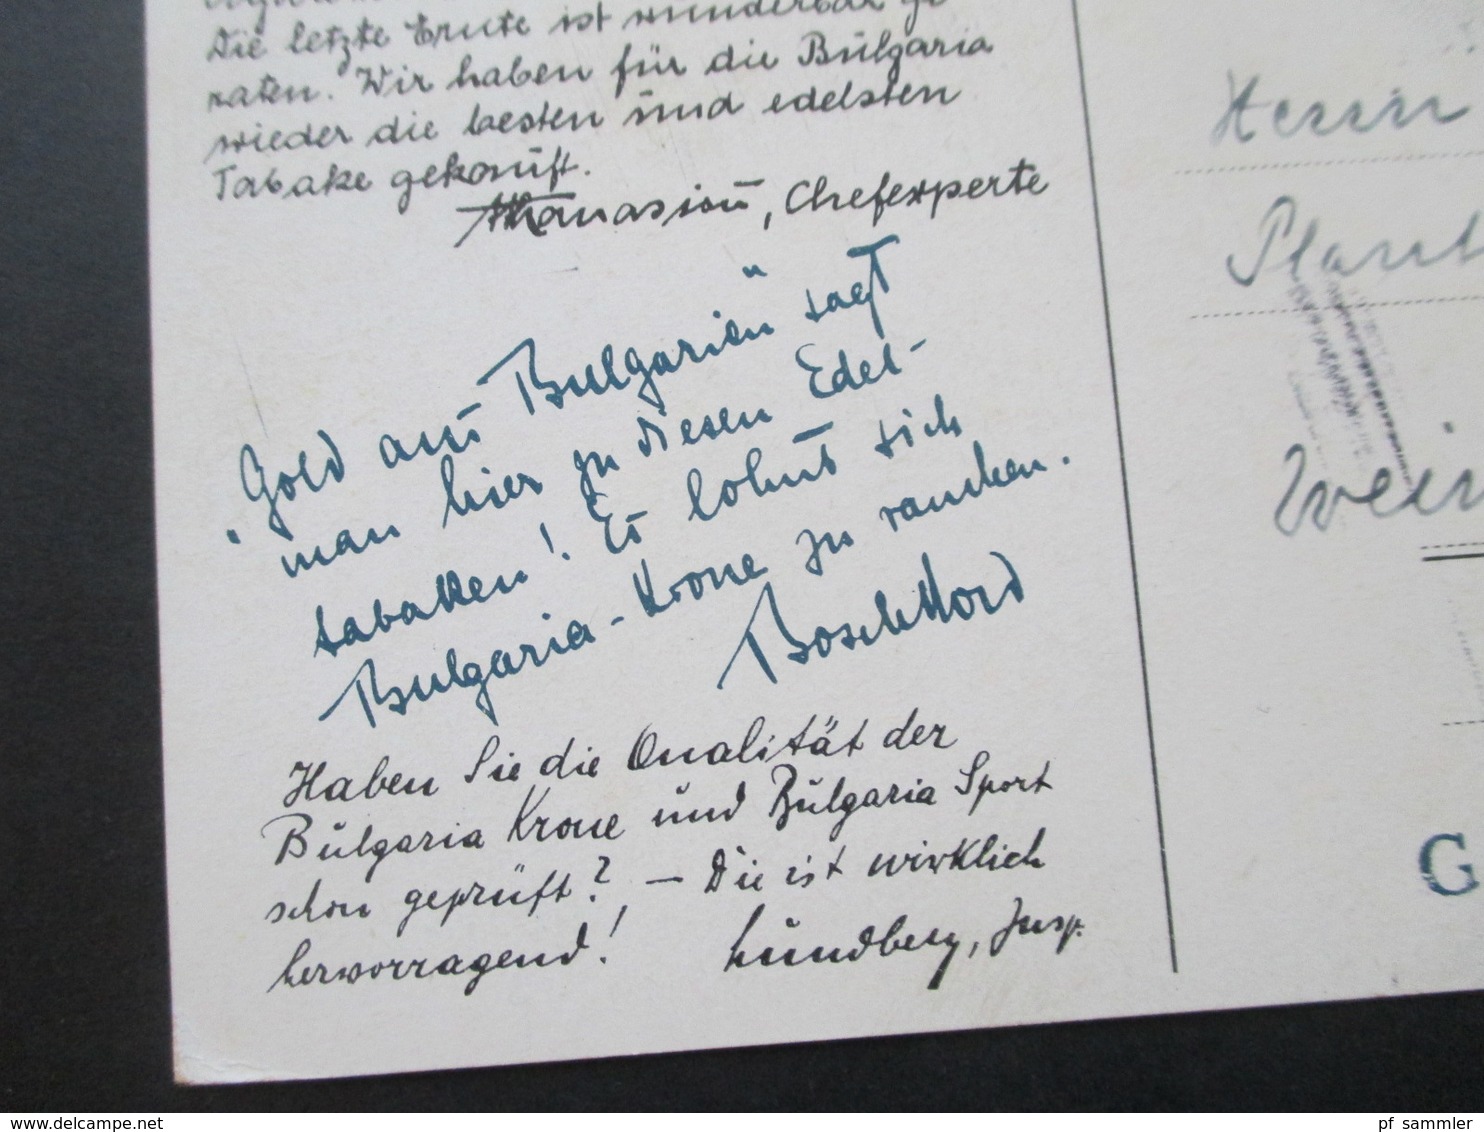 Die letzte Ernte ist wunderbar ge-
raten. Wir haben für die Bulgaria
wieder die besten und edelsten
Tabake gekauft.
Athanasiou, Chefexperte
„Gold aus Bulgarien" sagt
man hier zu diesen Edel-
tabaken! Es lohnt sich
Bulgaria-Krone zu rauchen.
Haben Sie die Qualität der
Bulgaria Krone und Bulgaria Sport
schon geprüft? – Die ist wirklich
hervorragend! Lundberg, Insp.
Herrn
G
www.delcampe.net
pf_sammler